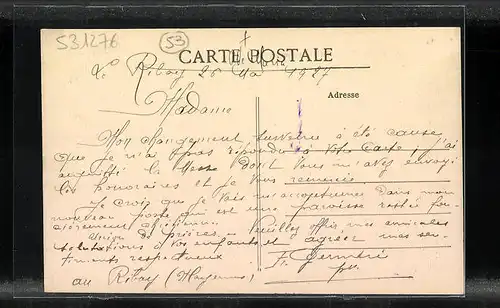 531276
53
CARTE POSTALE
Le Ribay 26 Mai 1927
Adresse
Madame
Mon changement survenu a été cause
que je n'ai pas répondu à votre carte, j'ai
la Messe dont vous m'avez envoyé
les honoraires et je vous remercie
Je crois que je vais dans mon
nouveau poste qui est une paroisse restée
chrétienne
prières - Veuillez offrir mes amicales
salutations à vos enfants et agréer mes sen-
timents respectueux
au Ribay (Mayenne)